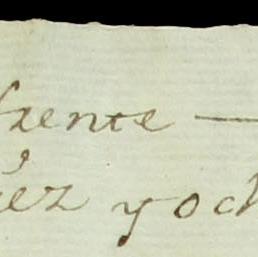 frente —
iez y och